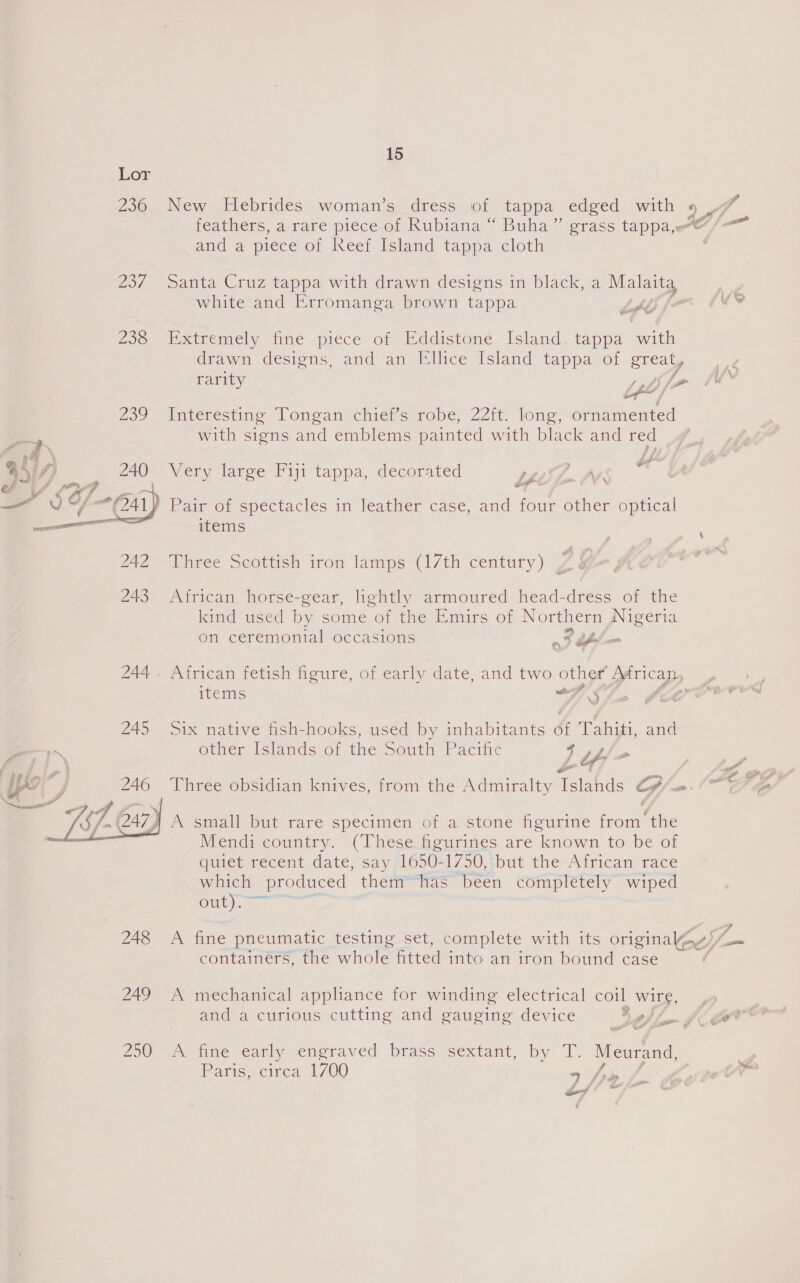 15
Lot
236 New Hebrides woman's dress of tappa edged with
feathers, a rare piece of Rubiana “ Buha ” grass tappa,
and a piece of Reef Island tappa cloth
237 Santa Cruz tappa with drawn designs in black, a Malaita
white and Erromanga brown tappa
238 Extremely fine piece of Eddistone Island tappa with
drawn designs, and an Ellice Island tappa of great
rarity
239 Interesting Tongan chief's robe, 22ft. long, ornamented
with signs and emblems painted with black and red
240 Very large Fiji tappa, decorated
241 Pair of spectacles in leather case, and four other optical
items
242 Three Scottish iron lamps (17th century)
243 African horse-gear, lightly armoured head-dress of the
kind used by some of the Emirs of Northern Nigeria
on ceremonial occasions
244 African fetish figure, of early date, and two other African
items
245 Six native fish-hooks, used by inhabitants of Tahiti, and
other Islands of the South Pacific
246 Three obsidian knives, from the Admiralty Islands
247 A small but rare specimen of a stone figurine from the
Mendi country. (These figurines are known to be of
quiet recent date, say 1650-1750, but the African race
which produced them has been completely wiped
out).
248 A fine pneumatic testing set, complete with its original
containers, the whole fitted into an iron bound case
249 A mechanical appliance for winding electrical coil wire,
and a curious cutting and gauging device
250 A fine early engraved brass sextant, by T. Meurand,
Paris, circa 1700